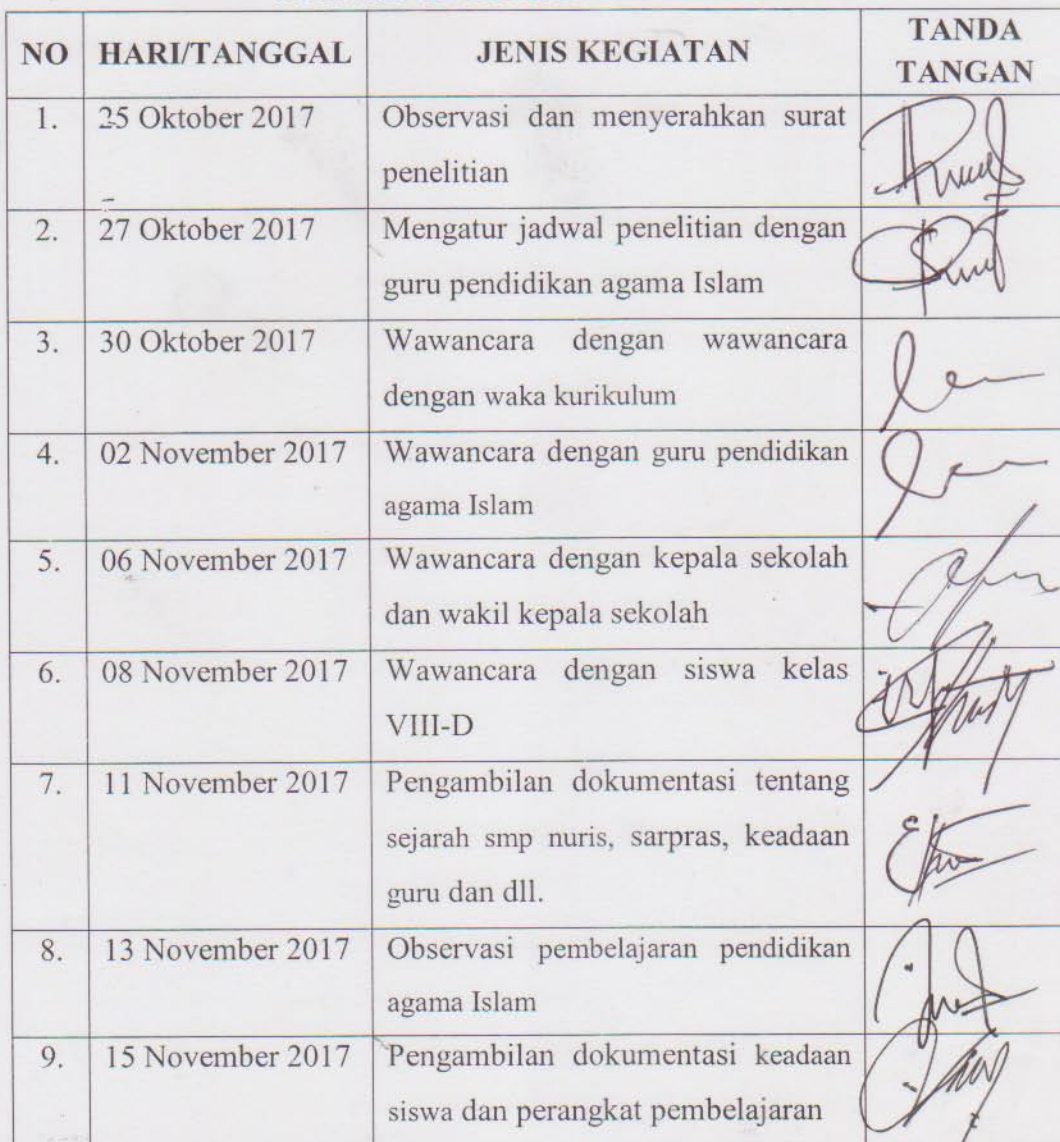 NO HARI/TANGGAL JENIS KEGIATAN TANDA
TANGAN
1. 25 Oktober 2017 Observasi dan menyerahkan surat
penelitian
2. 27 Oktober 2017 Mengatur jadwal penelitian dengan
guru pendidikan agama Islam
3. 30 Oktober 2017 Wawancara dengan wawancara
dengan waka kurikulum
4. 02 November 2017 Wawancara dengan guru pendidikan
agama Islam
5. 06 November 2017 Wawancara dengan kepala sekolah
dan wakil kepala sekolah
6. 08 November 2017 Wawancara dengan siswa kelas
VIII-D
7. 11 November 2017 Pengambilan dokumentasi tentang
sejarah smp nuris, sarpras, keadaan
guru dan dll.
8. 13 November 2017 Observasi pembelajaran pendidikan
agama Islam
9. 15 November 2017 Pengambilan dokumentasi keadaan
siswa dan perangkat pembelajaran